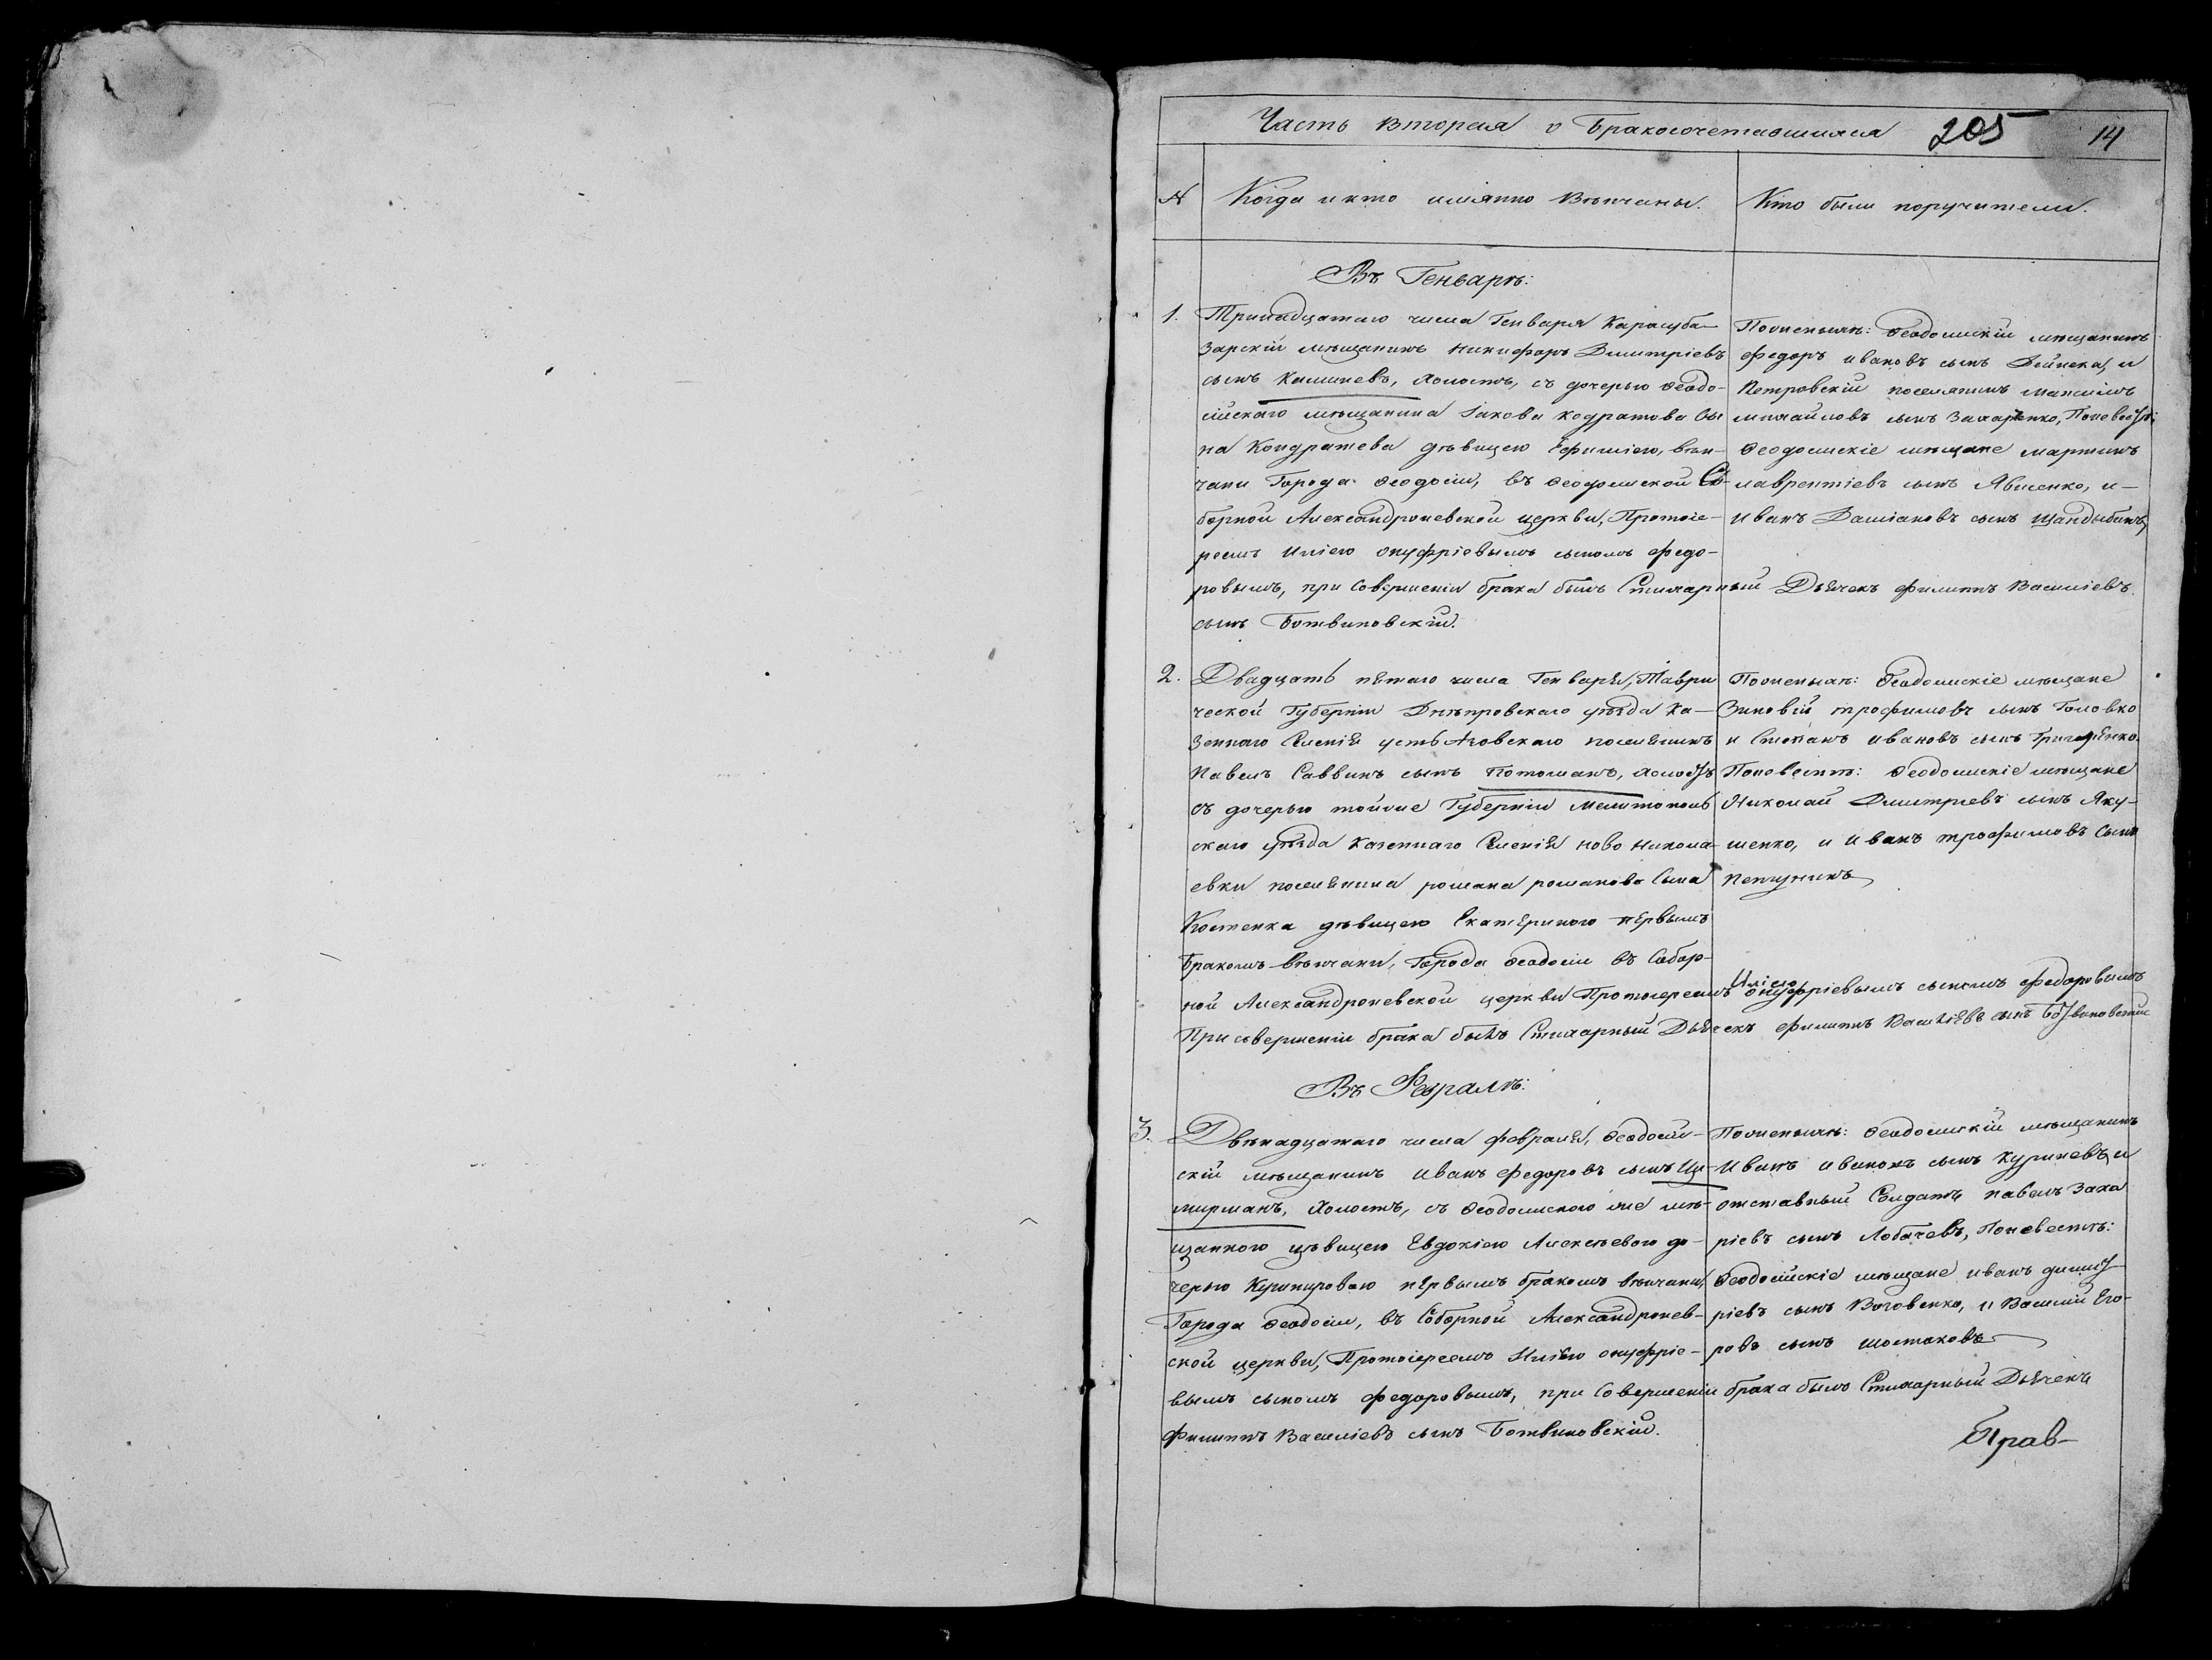 Часть вторая о Бракосочетавшихся 205 14
№ Когда и кто имянно Вѣнчаны. Кто были поручители.
Въ Генварѣ:
1. Тринадцатаго числа Генваря Карасуба-
зарскій мѣщанинъ Никифоръ Димитріевъ
сынъ Калиневъ, холостъ, съ дочерью Ѳеодо-
сійскаго мѣщанина Іакова Кодратова Сы
на Кондратева дѣвицею Ефиміею, вѣн-
чани Города Ѳеодосіи, въ Ѳеодосійской Со-
борной Александроневской церкви, Протоіе-
реемъ Иліею Онуфріевымъ сыномъ Федо-
ровымъ, при Совершеніи брака былъ Стихарный Дьячекъ Филиппъ Василіевъ
сынъ Ботвиновскій.
По женихѣ: Ѳеодосійскій мѣщанинъ
Федоръ Ивановъ сынъ Дейнека, и
Петровскій поселянинъ Максимъ
Михайловъ сынъ Захаренко, По невѣстѣ:
Ѳеодосійскіе мѣщане Мартинъ
Лаврентіевъ сынъ Явленко, и
Иванъ Даміановъ сынъ
2. Двадцать пятаго числа Генваря, Таври
ческой Губерніи Днѣпровскаго уѣзда Ка-
зеннаго Селенія поселянинъ
Павелъ Саввинъ сынъ Потоманъ, холостъ
съ дочерью тойже Губерніи Мелитополь
скаго уѣзда Казеннаго Селенія Ново Никола-
евки поселянина Романа Романова Сына
Костенка дѣвицею Екатериною первымъ
Бракомъ вѣнчани, Города Ѳеодосіи въ Собор-
ной Александроневской церкви Протоіереемъ Иліею Онуфріевымъ сыномъ Федоровымъ
При совершеніи брака былъ Стихарный Дьячекъ Филиппъ Василіевъ сынъ Ботвиновскій
По женихѣ: Ѳеодосійскіе мѣщане
Зиновій Трофимовъ сынъ Головко
и Степанъ Ивановъ сынъ
По невѣстѣ: Ѳеодосійскіе мѣщане
Николай Димитріевъ сынъ Яку-
шенко, и Иванъ Трофимовъ Сынъ
Въ Февралѣ:
3. Двѣнадцатаго числа Февраля, Ѳеодосій-
скій мѣщанинъ Иванъ Федоровъ сынъ Ци-
мирманъ, Холостъ, съ Ѳеодосійскою же мѣ-
щанкою дѣвицею Евдокіею Алексѣевою до-
черью первымъ бракомъ вѣнчани,
Города Ѳеодосіи, въ Соборной Александронев-
ской церкви, Протоіереемъ Иліею Онуфріе-
вымъ сыномъ Федоровымъ, при Совершеніи брака былъ Стихарный Дьячекъ
Филиппъ Василіевъ сынъ Ботвиновскій.
По женихѣ: Ѳеодосійскій мѣщанинъ
Иванъ Ивановъ сынъ Куриневъ, и
отставный Солдатъ Павелъ Заха
ріевъ сынъ Лобачевъ, По невѣстѣ:
Ѳеодосійскіе мѣщане Иванъ Димит-
ріевъ сынъ и Василій Его-
ровъ сынъ Шостаковъ
Прав-